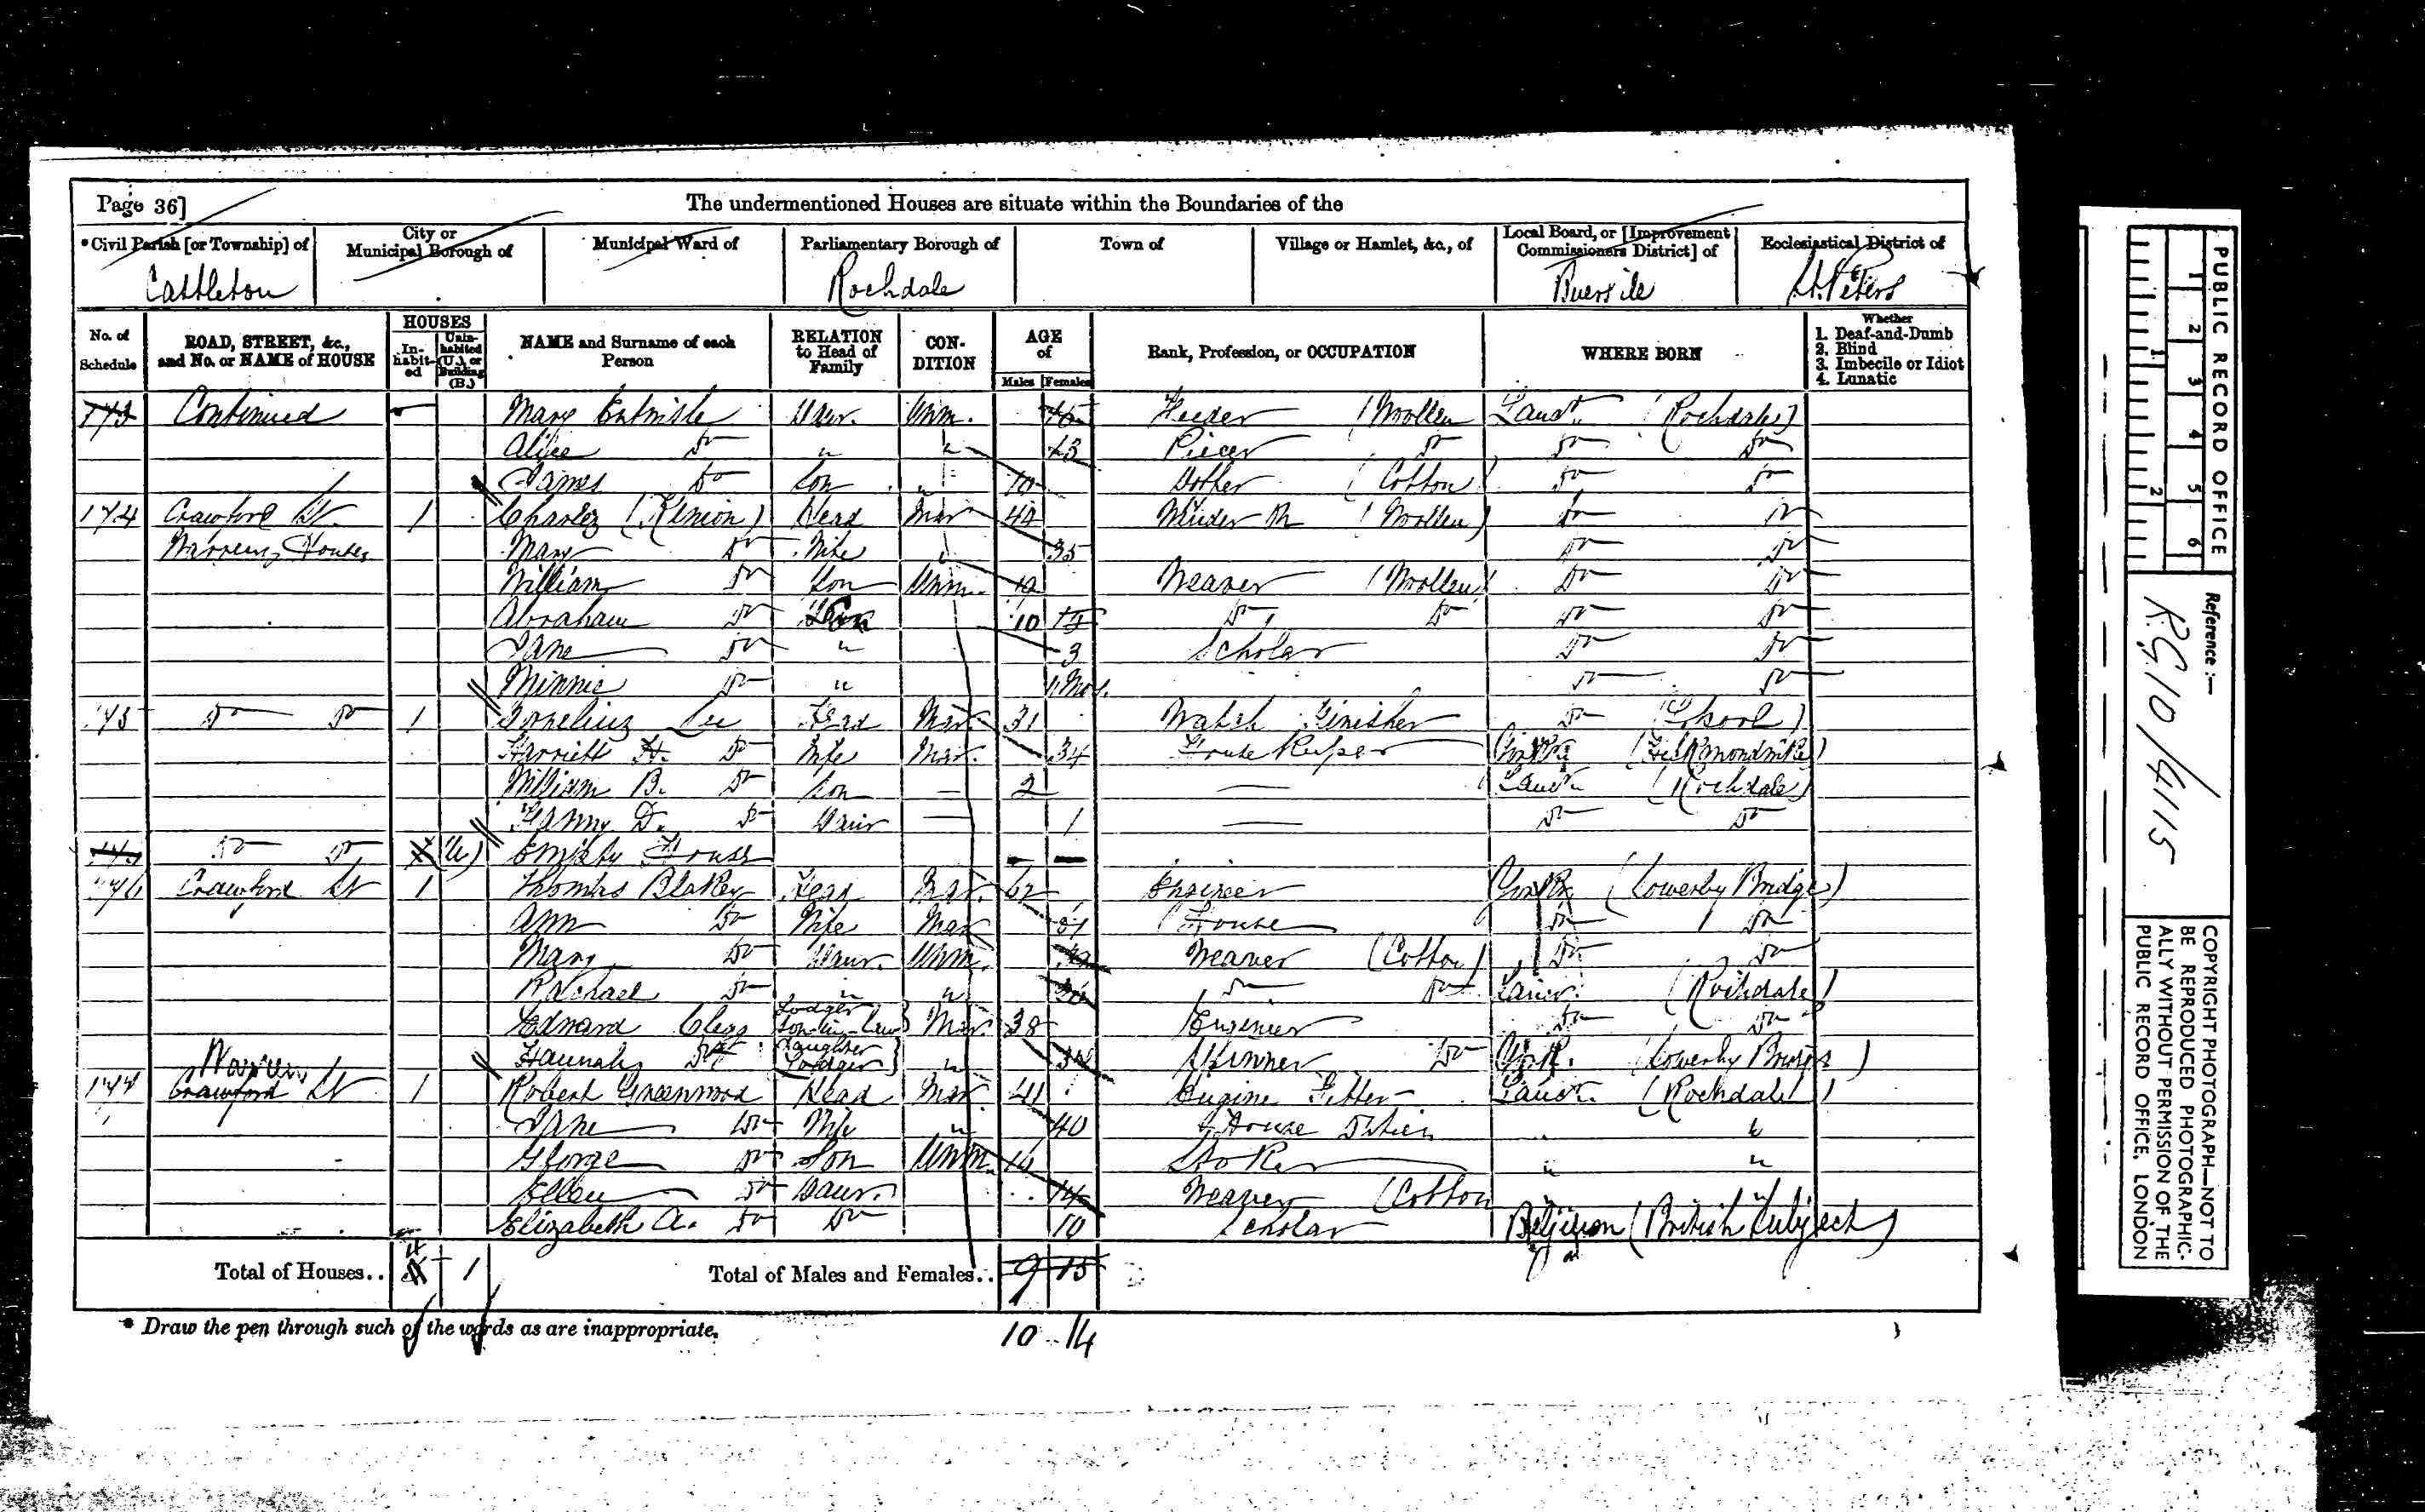 Page 36]
The undermentioned Houses are situate within the Boundaries of the
*Civil Parish [or Township] of
City or Municipal Borough of
Municipal Ward of
Parliamentary Borough of
Town of
Village or Hamlet, &c., of
Local Board, or [Improvement Commissioners District] of
Ecclesiastical District of
Castleton
Rochdale
St. Peters
No. of Schedule
ROAD, STREET, &c., and No. or NAME of HOUSE
HOUSES
In-habit-ed
Unin-habited (U.), or Building (B.)
NAME and Surname of each Person
RELATION to Head of Family
CON-DITION
AGE of
Males Females
Rank, Profession, or OCCUPATION
WHERE BORN
Whether
1. Deaf-and-Dumb
2. Blind
3. Imbecile or Idiot
4. Lunatic
173 Continued Mary Entwistle Daur. Unm. (Woollen Lanc. (Rochdale)
Alice Do " " Piecer Do Do Do
James Do Son " 10 Doffer (Cotton) Do Do
174 Crawford St. 1 Charles (Kenion) Head Mar (Woollen) Do Do
Warrens Houses Mary Do Wife 35 Do Do
William Do Son Unm. 12 Weaver (Woollen) Do Do
Abraham Do Son 10 Do Do Do Do
Jane Do " 3 Scholar Do Do
Minnie Do " Mos. Do Do
175 Do Do 1 Cornelius Lee Head Mar. 31 Finisher Do
Harriett H. Do Wife Mar. 34 House Keeper (Heckmondwike)
William B. Do Son — 2 — Lanc. (Rochdale)
Fanny D. Do Daur — 1 — Do Do
Do Do (U) Empty House — —
176 Crawford St 1 Thomas Blakey Head Mar. 62 Engineer (Sowerby Bridge)
Ann Do Wife Mar House Do Do
Mary Do Daur. Unm. Weaver (Cotton) Do Do
Rachael Do " " Do Do Lanc. (Rochdale)
Edward Clegg Lodger Son-in-Law Mar. 38 Engineer Do Do
Hannah Do Daughter Lodger " Do York. (Sowerby Bridge)
Warren
177 Crawford St 1 Robert Greenwood Head Mar. 41 Engine Fitter Lanc. (Rochdale)
Jane Do Wife " 40 House Duties " "
George Do Son Unm. Stoker " "
Ellen Do Daur. 14 Weaver (Cotton " "
Elizabeth A. Do Do 10 Scholar Belgium (British Subject)
Total of Houses.. 4 1
Total of Males and Females.. 9 15
10 14
* Draw the pen through such of the words as are inappropriate.
PUBLIC RECORD OFFICE
1 2 3 4 5 6
1 2
Reference :—
R.G. 10/4115
COPYRIGHT PHOTOGRAPH—NOT TO
BE REPRODUCED PHOTOGRAPHIC-
ALLY WITHOUT PERMISSION OF THE
PUBLIC RECORD OFFICE, LONDON